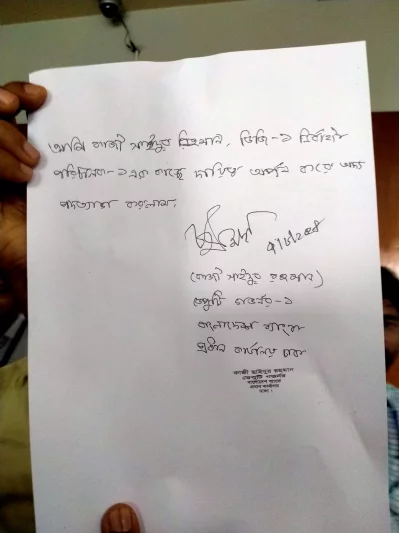 আমি কাজী সাইদুর রহমান, ডিজি-১ নির্বাহী
পরিচালক-১ এর কাছে দায়িত্ব অর্পন করে অদ্য
পদত্যাগ করলাম।
(কাজী সাইদুর রহমান)
ডেপুটি গভর্নর-১
বাংলাদেশ ব্যাংক
প্রধান কার্যালয় ঢাকা
কাজী ছাইদুর রহমান
ডেপুটি গভর্নর
বাংলাদেশ ব্যাংক
প্রধান কার্যালয়
ঢাকা।